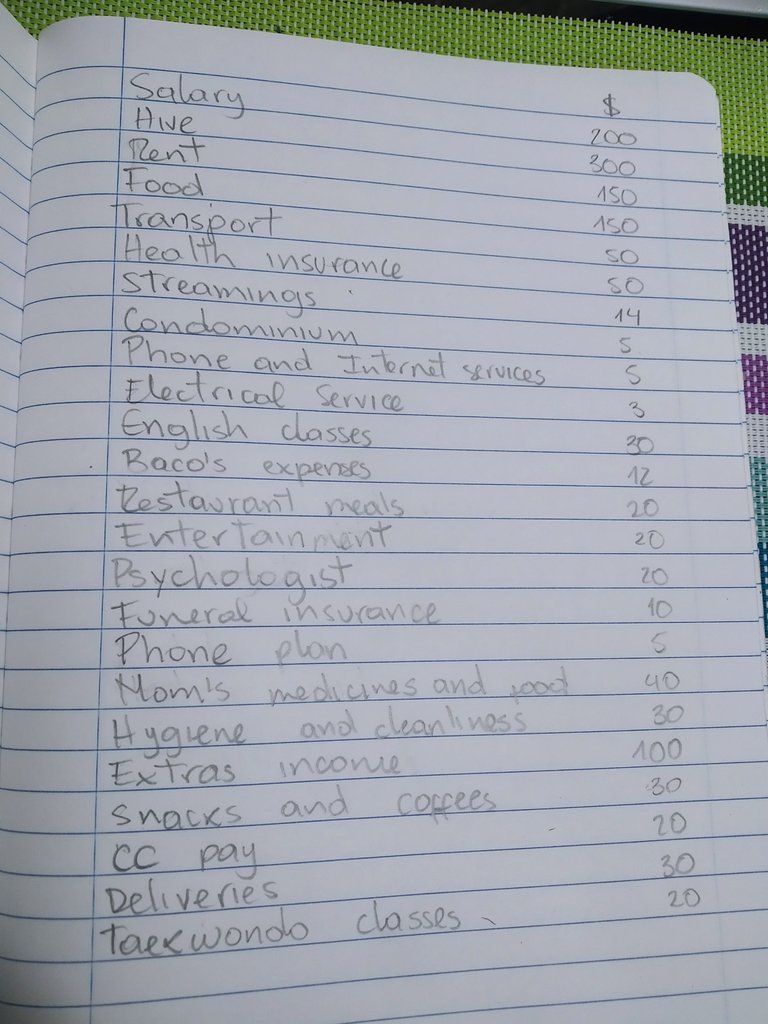 $
Salary 200
Hive 300
Rent 150
Food 150
Transport 50
Health insurance 50
Streamings 14
Condominium 5
Phone and Internet services 5
Electrical Service 3
English classes 30
Baco's expenses 12
Restaurant meals 20
Entertainment 20
Psychologist 20
Funeral insurance 10
Phone plan 5
Mom's medicines and food 40
Hygiene and cleanliness 30
Extras income 100
Snacks and coffees 30
CC pay 20
Deliveries 30
Taekwondo classes 20